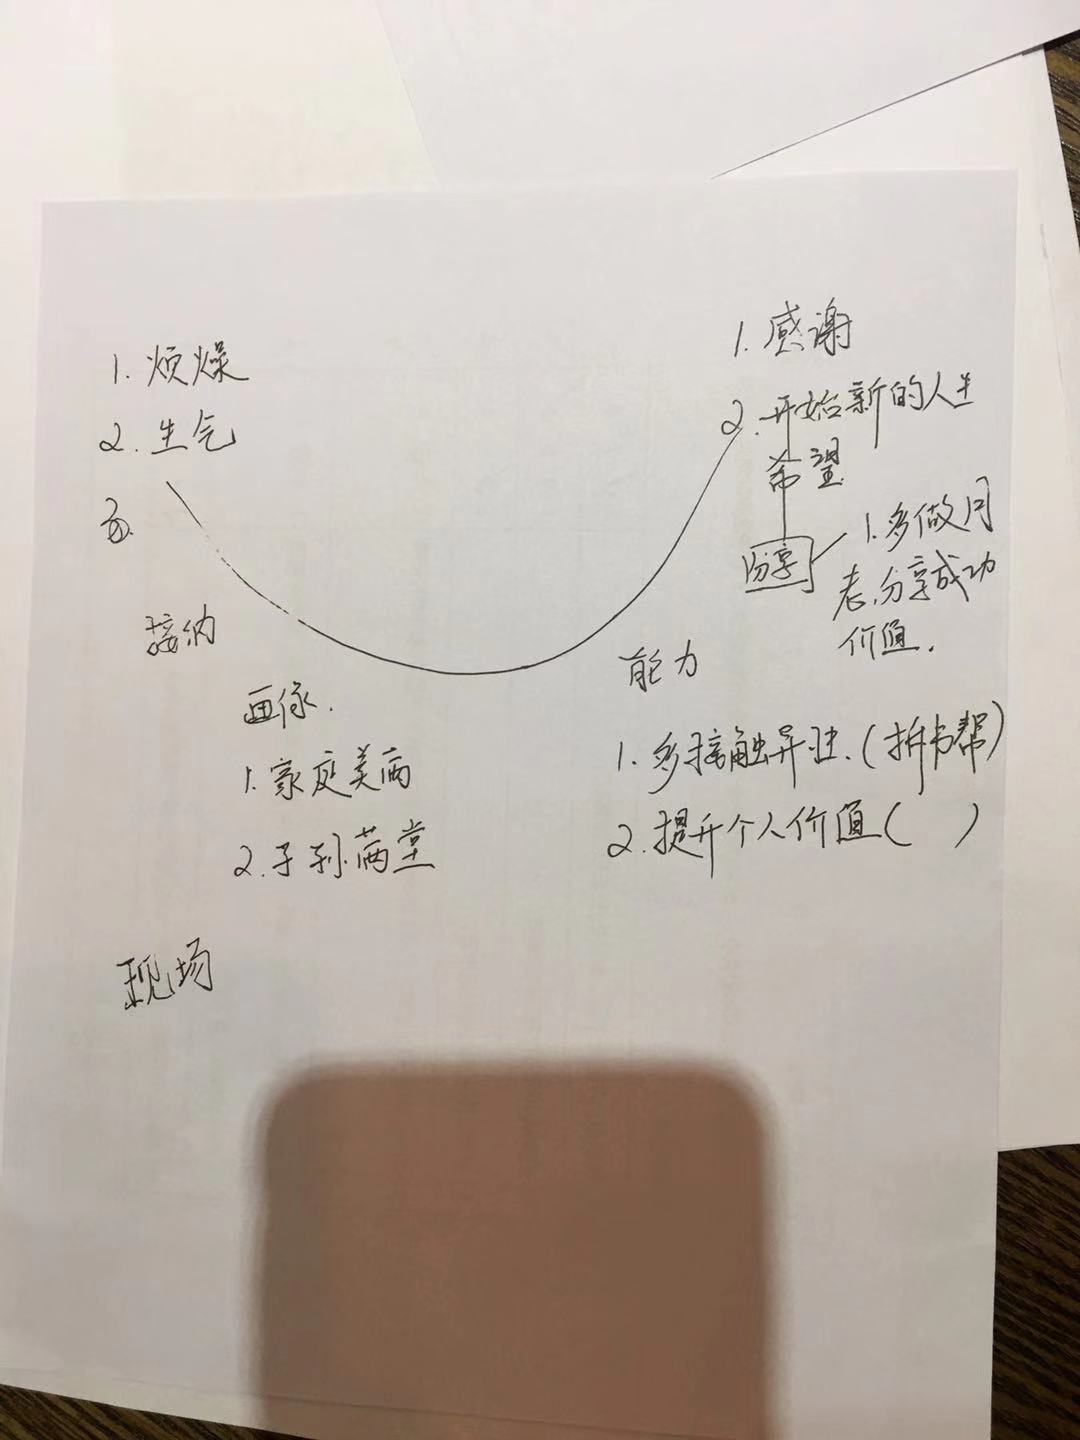 1.烦燥
2.生气
3.
接纳
画像.
1.家庭美两
2.子孙满堂
现场
1.感谢
2.开始新的人生
希望
分享
1.多做月
老,分享成功
价值.
能力
1.多接触异性.(拆书帮)
2.提升个人价值( )